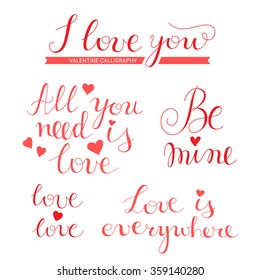 I love you
VALENTINE CALLIGRAPHY
All you
need is
love
Be
mine
love
love
Love is
everywhere
shutterstock
359140280